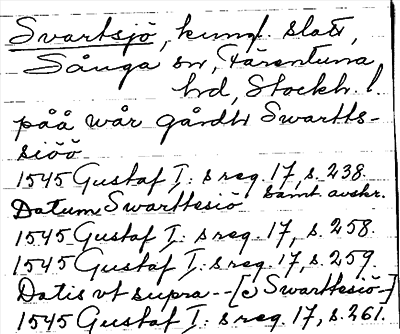 Svartsjö, kungl. slott,
Sånga sn, Färentuna
hd, Stockh. l.
påå wår gårdh Swartts-
siöö
1545 Gustaf I: s reg. 17, s. 238.
Datum Swarttesiö samt avskr.
1545 Gustaf I: s reg. 17, s. 258.
1545 Gustaf I: s reg. 17, s. 259.
Datis vt supra -- [ɔ Swarttesiö-]
1545 Gustaf I: s reg. 17, s. 261.